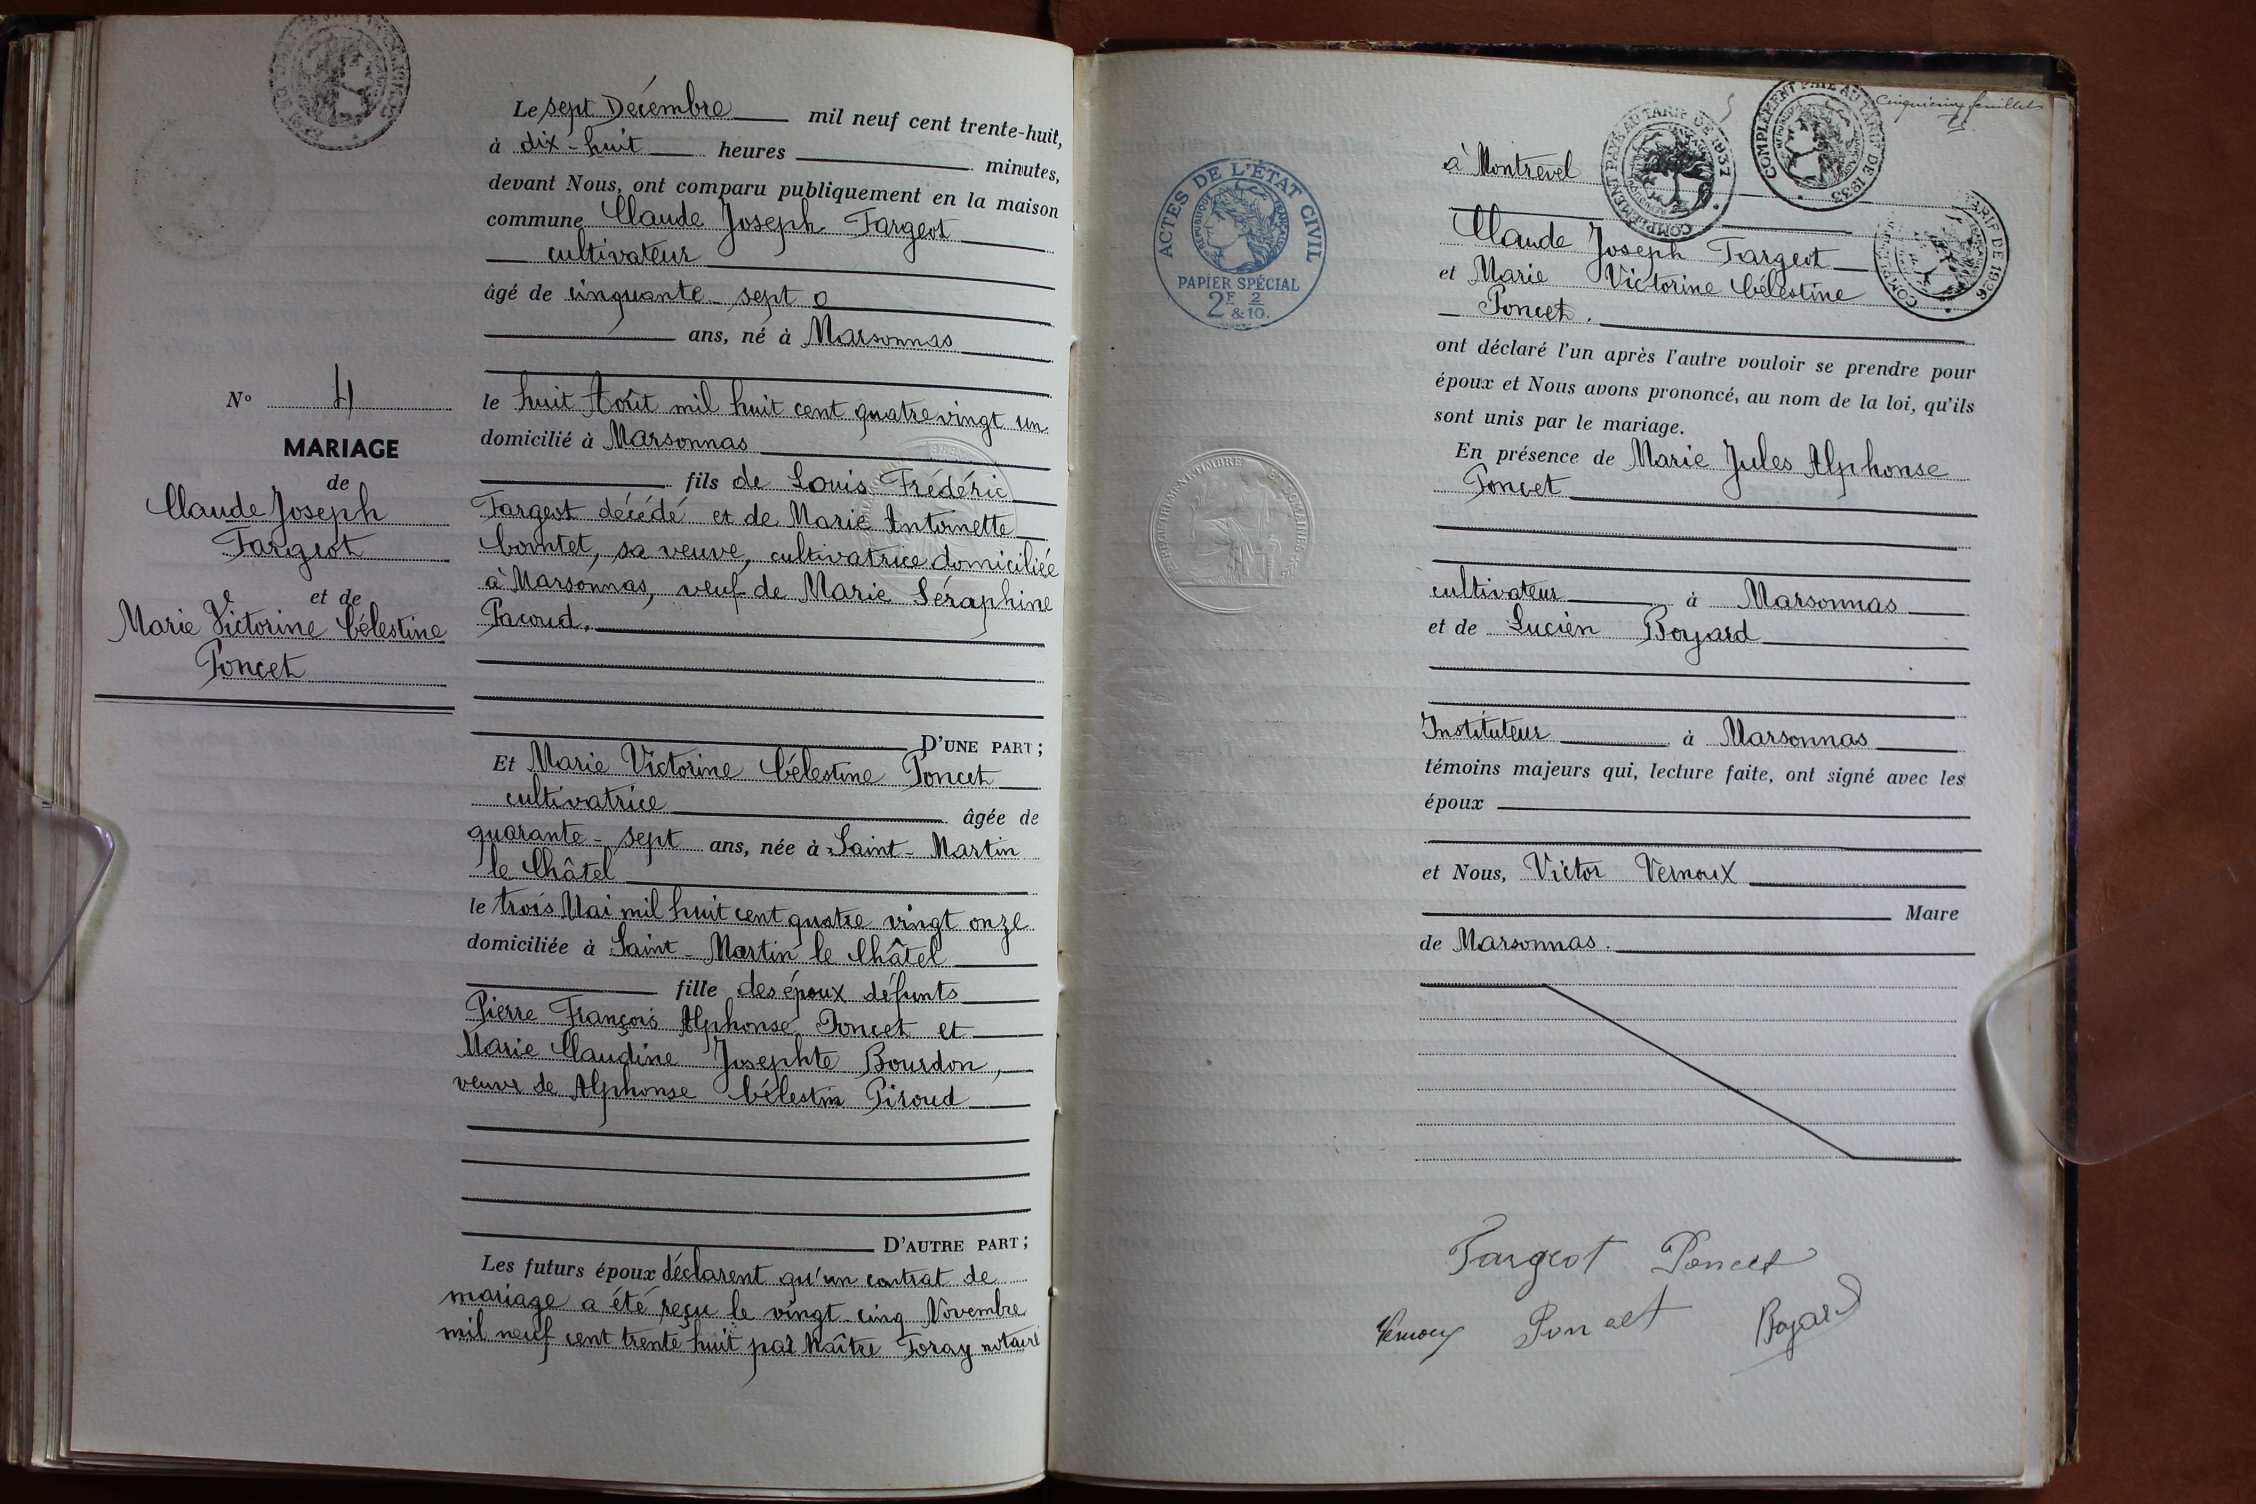 Le sept Décembre mil neuf cent trente-huit,
à dix-huit heures minutes,
devant Nous, ont comparu publiquement en la maison
commune Claude Joseph Fargeot
cultivateur
âgé de cinquante-sept
ans, né à Marsonnas
le huit Août mil huit cent quatre vingt un
domicilié à Marsonnas
fils de Louis Frédéric
Fargeot décédé et de Marie Antoinette
Comtet, sa veuve, cultivatrice domiciliée
à Marsonnas, veuf de Marie Séraphine
Pacoud.
D'UNE PART;
Nº 4
MARIAGE
de
Claude Joseph
Fargeot
et de
Marie Victorine Célestine
Poncet
Et Marie Victorine Célestine Poncet
cultivatrice âgée de
quarante-sept ans, née à Saint-Martin
le Châtel
le trois Mai mil huit cent quatre vingt onze
domiciliée à Saint-Martin le Châtel
fille des époux défunts
Pierre François Alphonse Poncet et
Marie Claudine Josephte Bourdon,
veuve de Alphonse Célestin Piroud
D'AUTRE PART;
Les futurs époux déclarent qu'un contrat de
mariage a été reçu le vingt-cinq Novembre
mil neuf cent trente huit par Maître Foray notaire
ACTES DE L'ÉTAT CIVIL
RÉPUBLIQUE FRANÇAISE
PAPIER SPÉCIAL
2F & 2/10.
COMPLÉMENT PAYÉ AU TARIF DE 1937
COMPLÉMENT PAYÉ AU TARIF DE 1935
TARIF DE 1926
cinquième feuillet
à Montrevel
Claude Joseph Fargeot
et Marie Victorine Célestine
Poncet.
ont déclaré l'un après l'autre vouloir se prendre pour
époux et Nous avons prononcé, au nom de la loi, qu'ils
sont unis par le mariage.
En présence de Marie Jules Alphonse
Poncet
cultivateur à Marsonnas
et de Lucien Boyard
Instituteur à Marsonnas
témoins majeurs qui, lecture faite, ont signé avec les
époux
et Nous, Victor Vernoux
Maire
de Marsonnas.
Fargeot Poncet
Vernoux Poncet Boyard